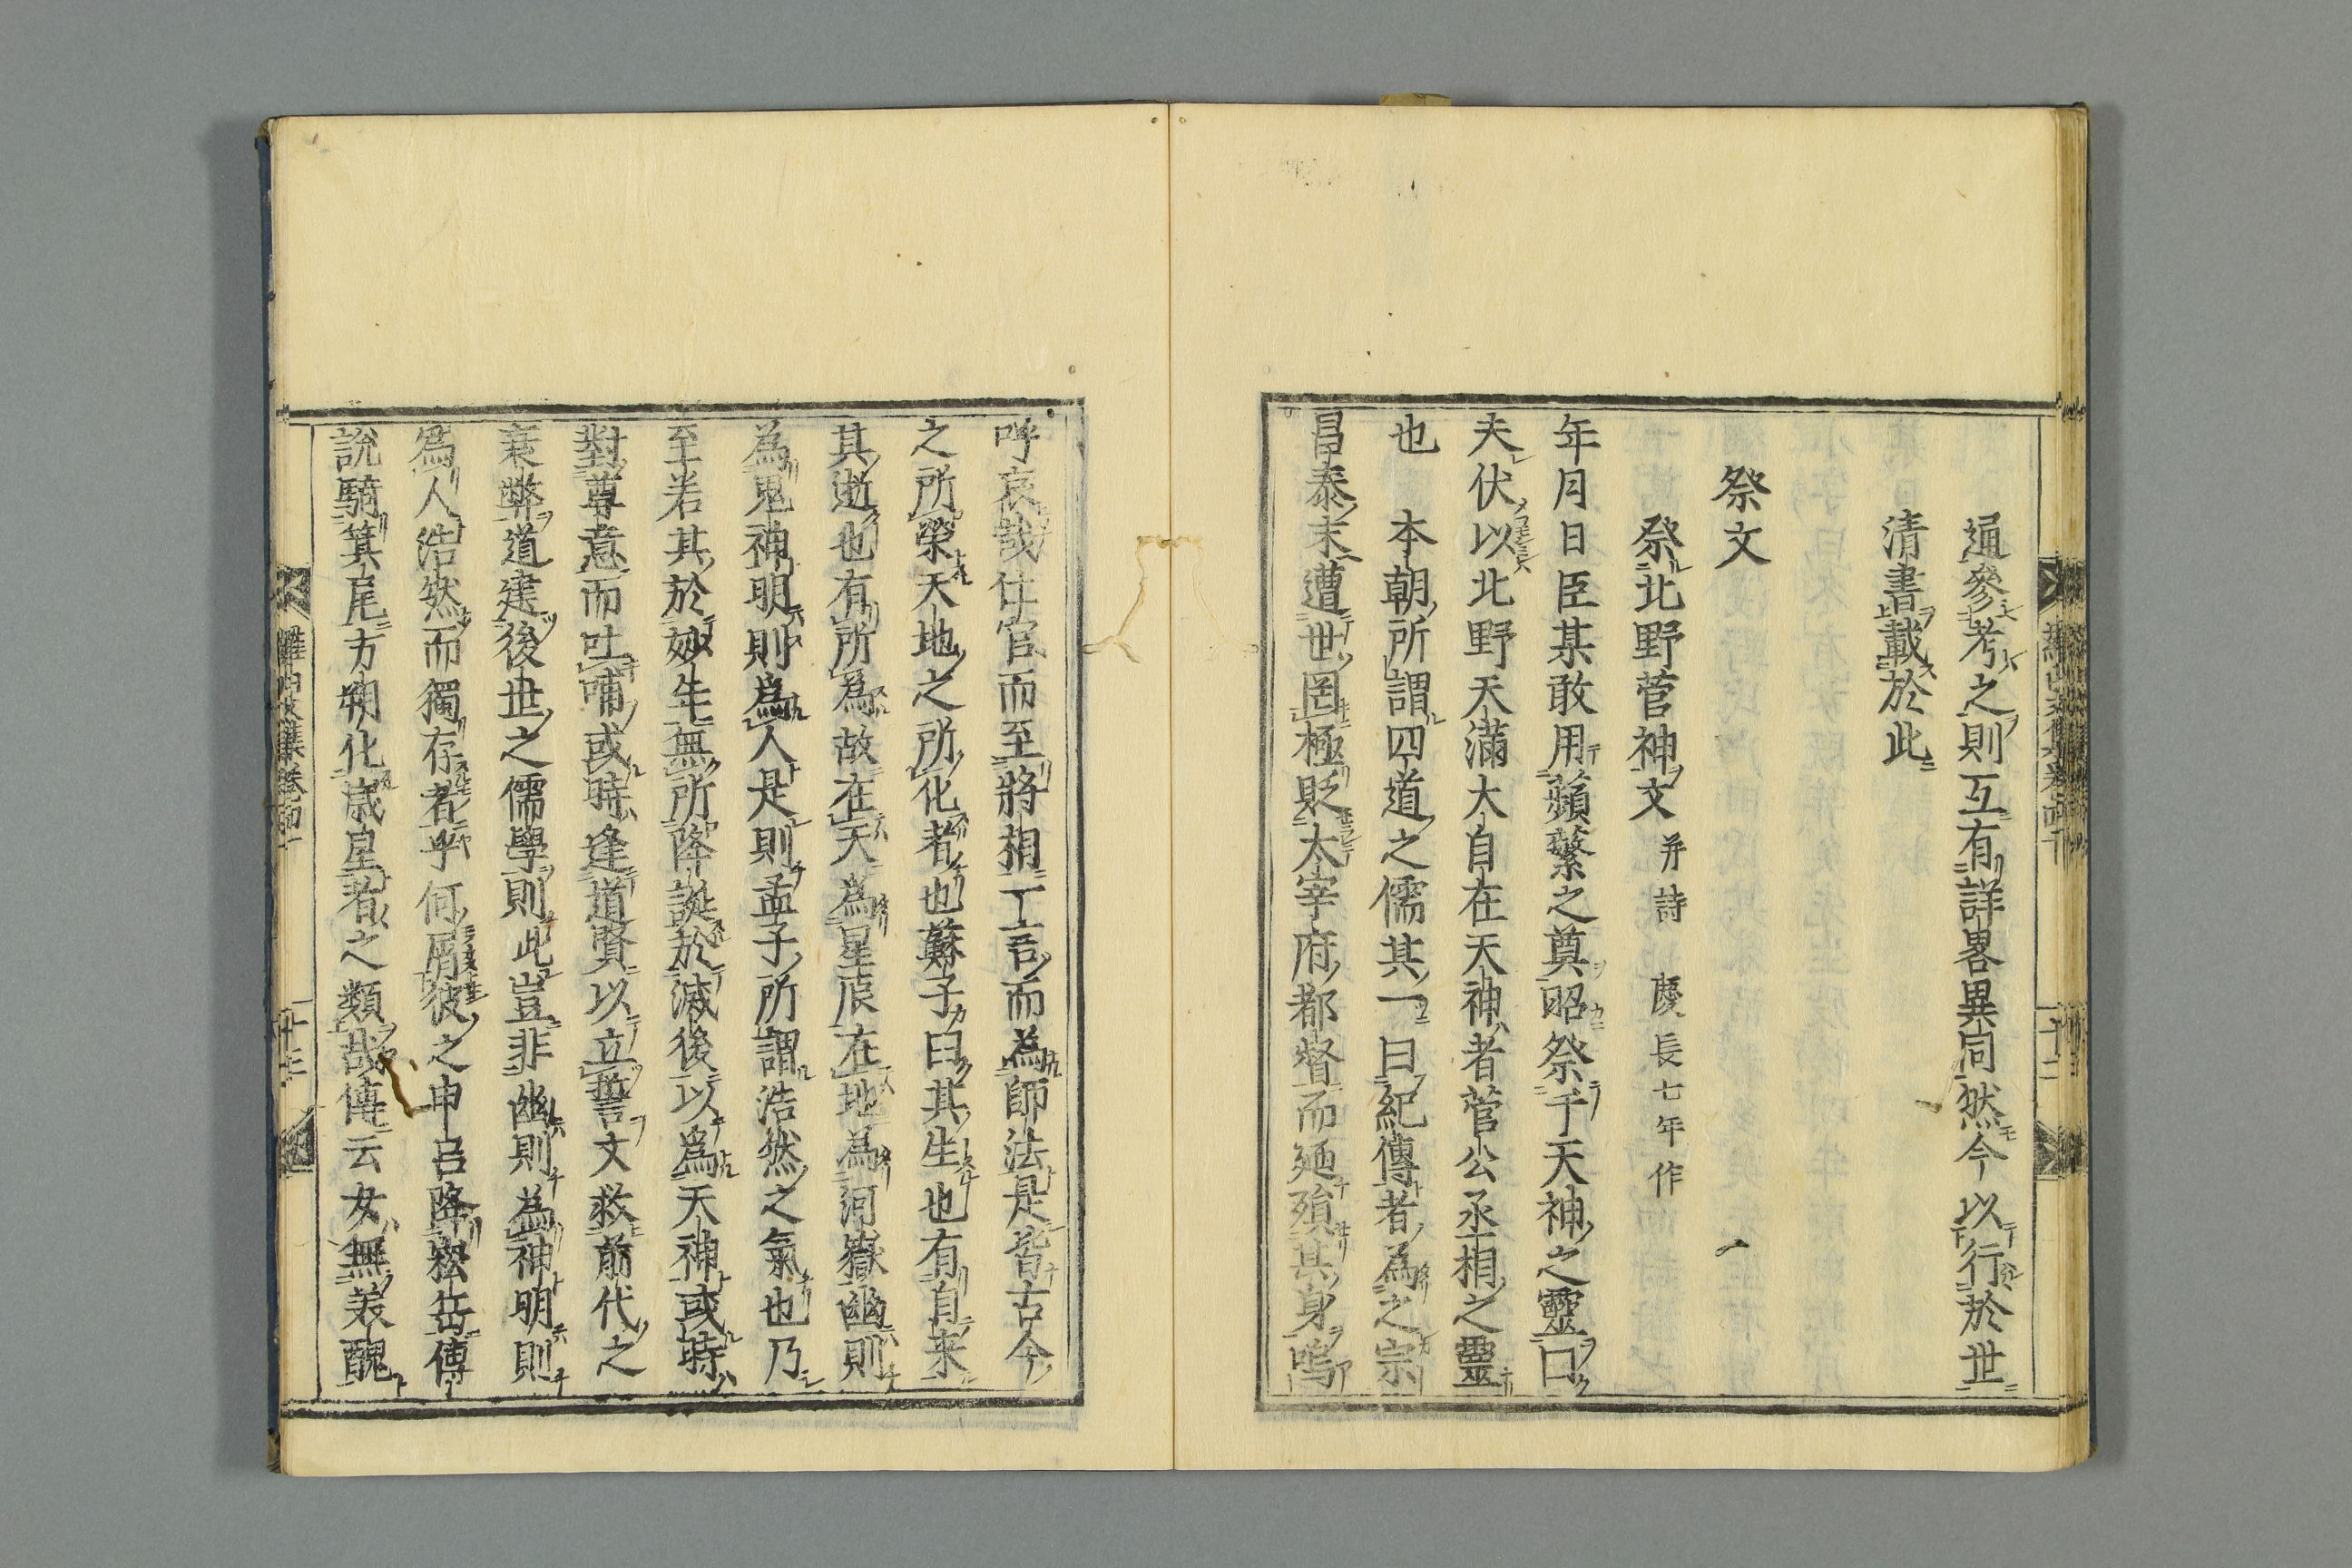 通參考之則互有詳畧異同然今以行於世
清書載於此
祭文
祭北野菅神文 并詩 慶長七年作
年月日臣某敢用蘋蘩之奠昭祭于天神之靈曰
夫伏以北野天滿大自在天神者菅公丞相之靈
也 本朝所謂四道之儒其一曰紀傳者為之宗
昌泰末遭世罔極貶太宰府都督而殛殞其身嗚
呼哀哉仕官而至將相一言而為師法是皆古今
之所榮天地之所化者也蘇子曰其生也有自来
其逝也有所為故在天為星辰在地為河嶽幽則
為鬼神明則為人是則孟子所謂浩然之氣也乃
至若其於妙年無所降誕於滅後以為天神或時
對尊意而吐哺或時逢道賢以立誓文救前代之
衰弊道建後世之儒學則此豈非幽則為神明則
為人浩然而獨存者乎何屑彼之申呂降崧岳傅
說騎箕尾方朔化歳星者之類哉傳云女無美醜
羅山文集巻四十
十二
羅山文集巻四十
十三